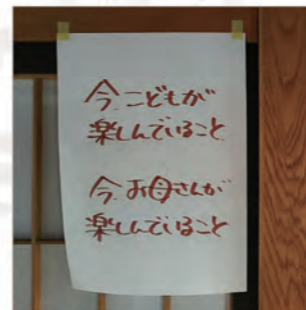 今、こどもが
楽しんでいること
今、お母さんが
楽しんでいること